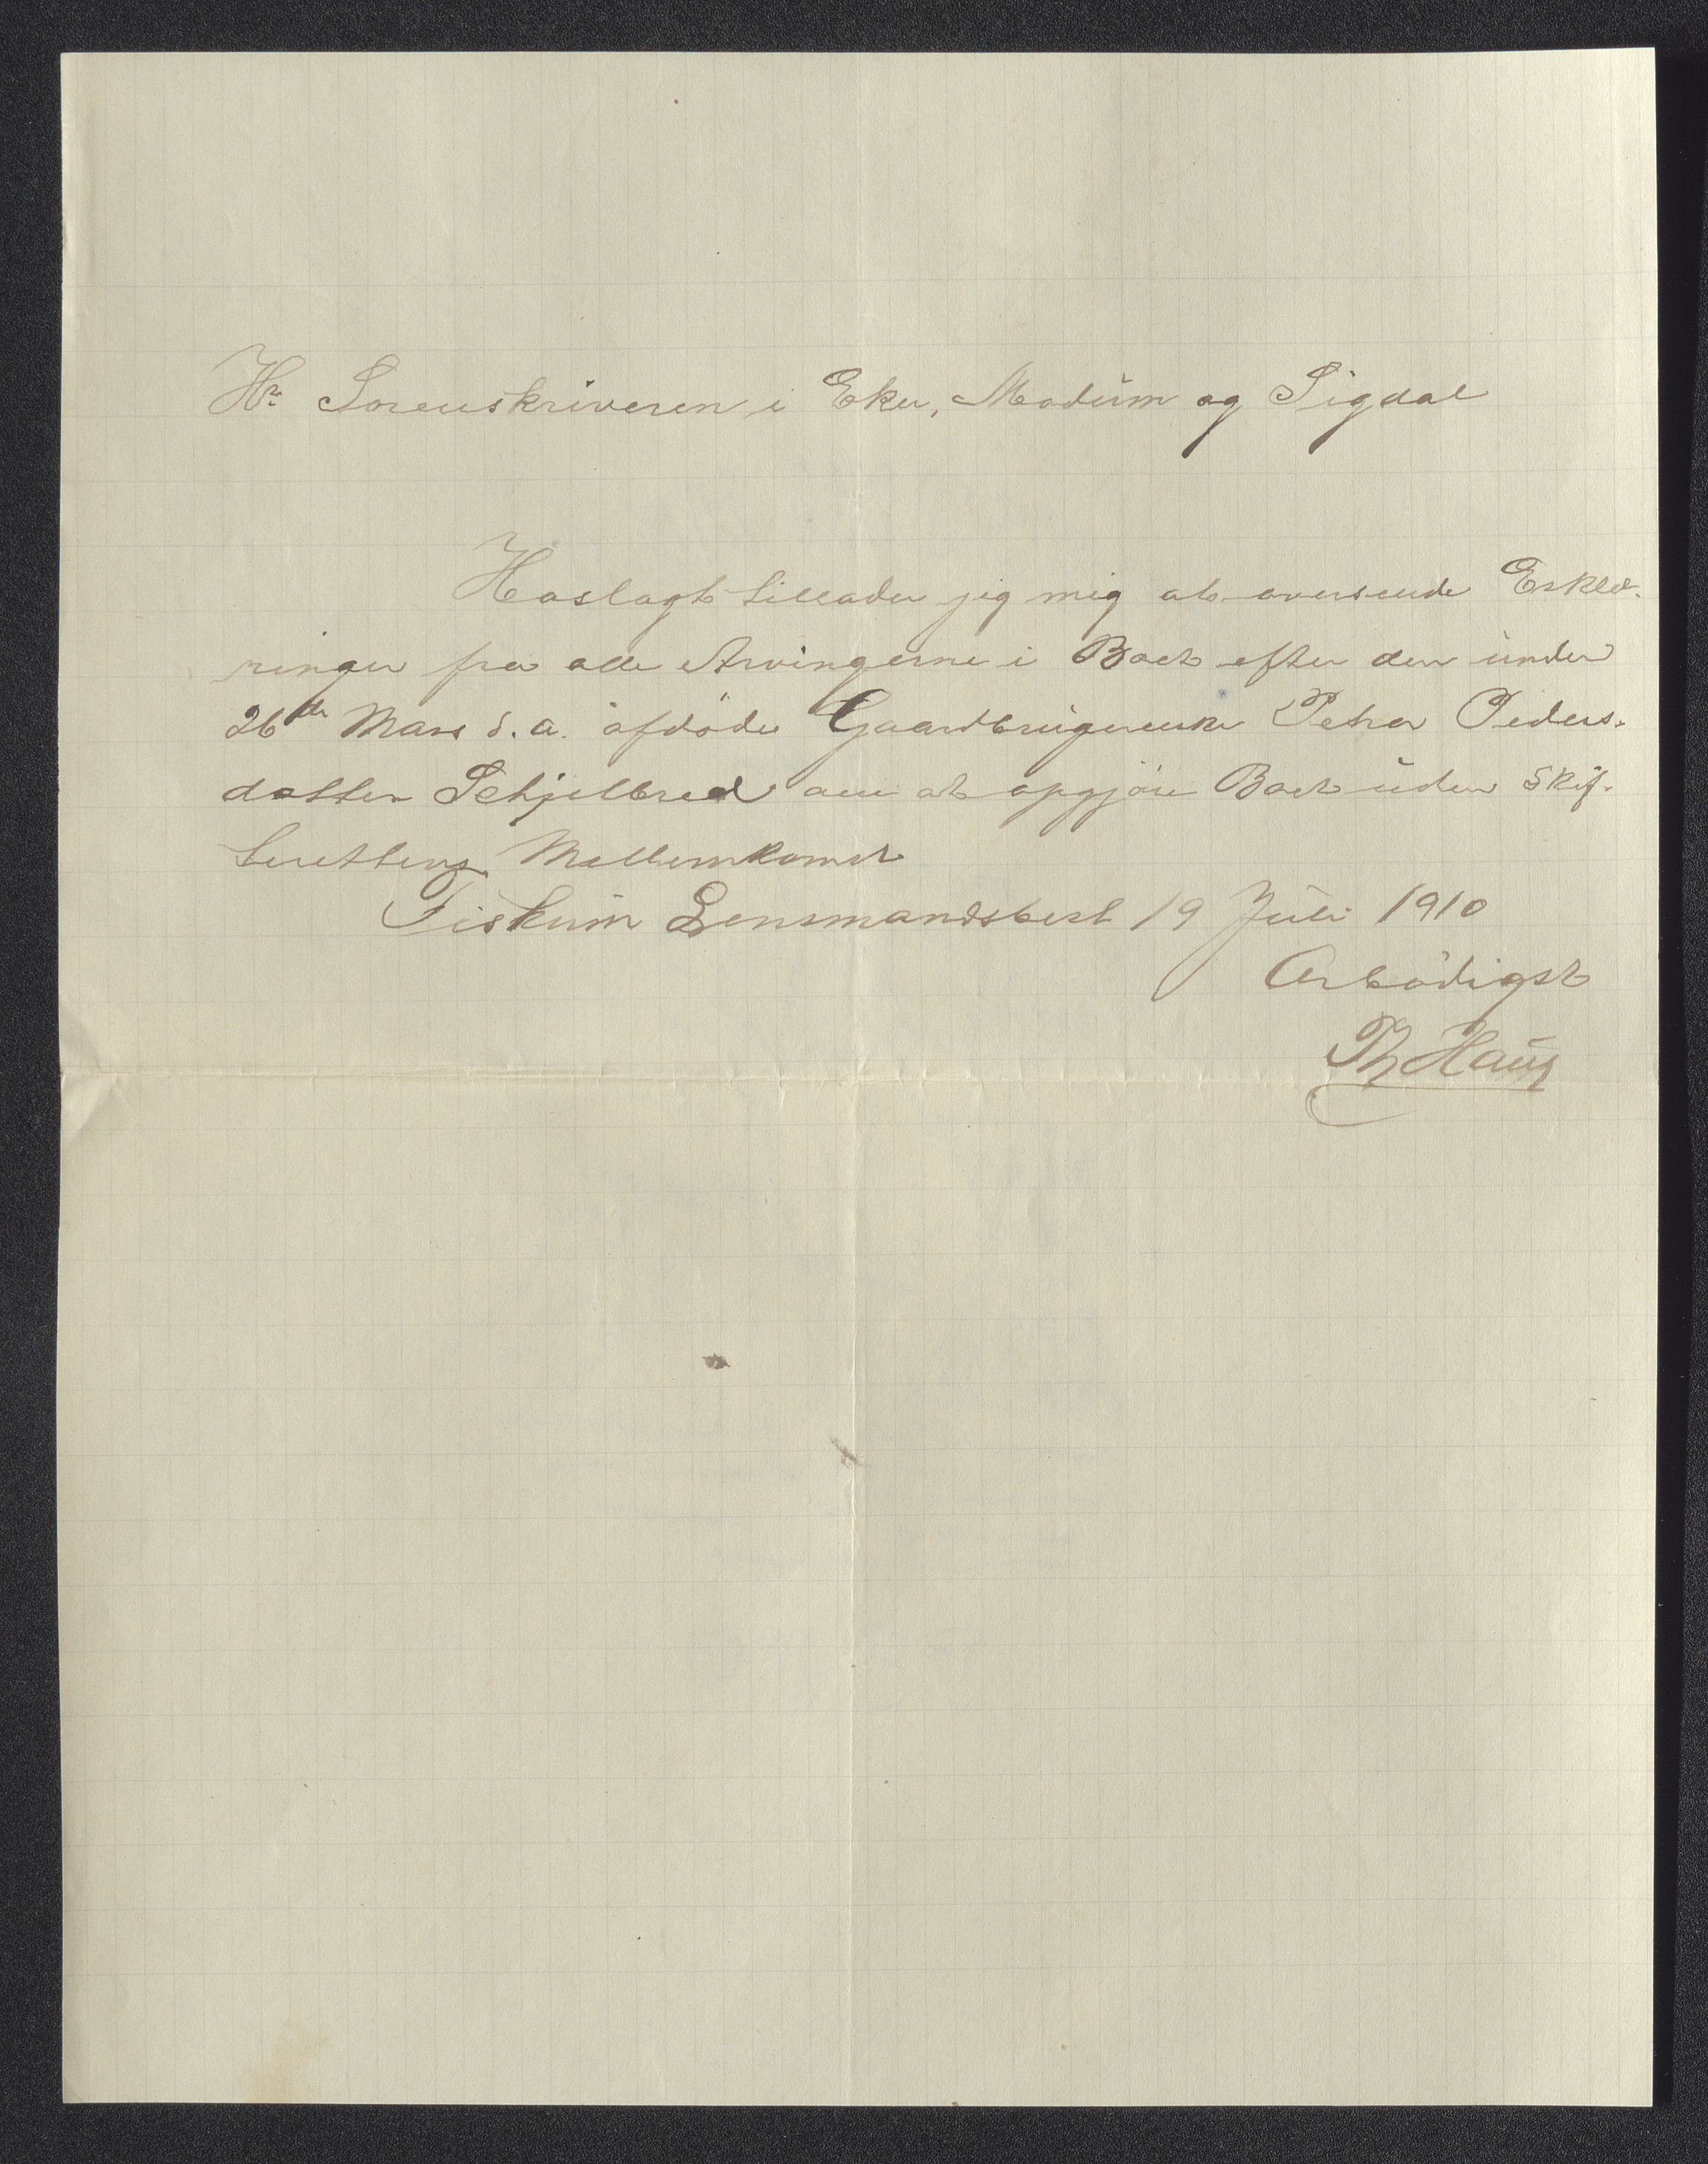 Hr. Sorenskriveren i Eker, Modum og Sigdal
Hoslagt tillader jeg mig at oversende Erklæ-
ringer fra alle Arvingerne i Boet efter den under
26de Mars d. a. afdøde Gaardbrugerenke Petra Peders-
datter Schjelbred om at opgjøre Boet uden Skif-
terettens Mellemkomst
Fiskum Lensmandsbest 19 Juli 1910
Ærbødigst
Th Haug